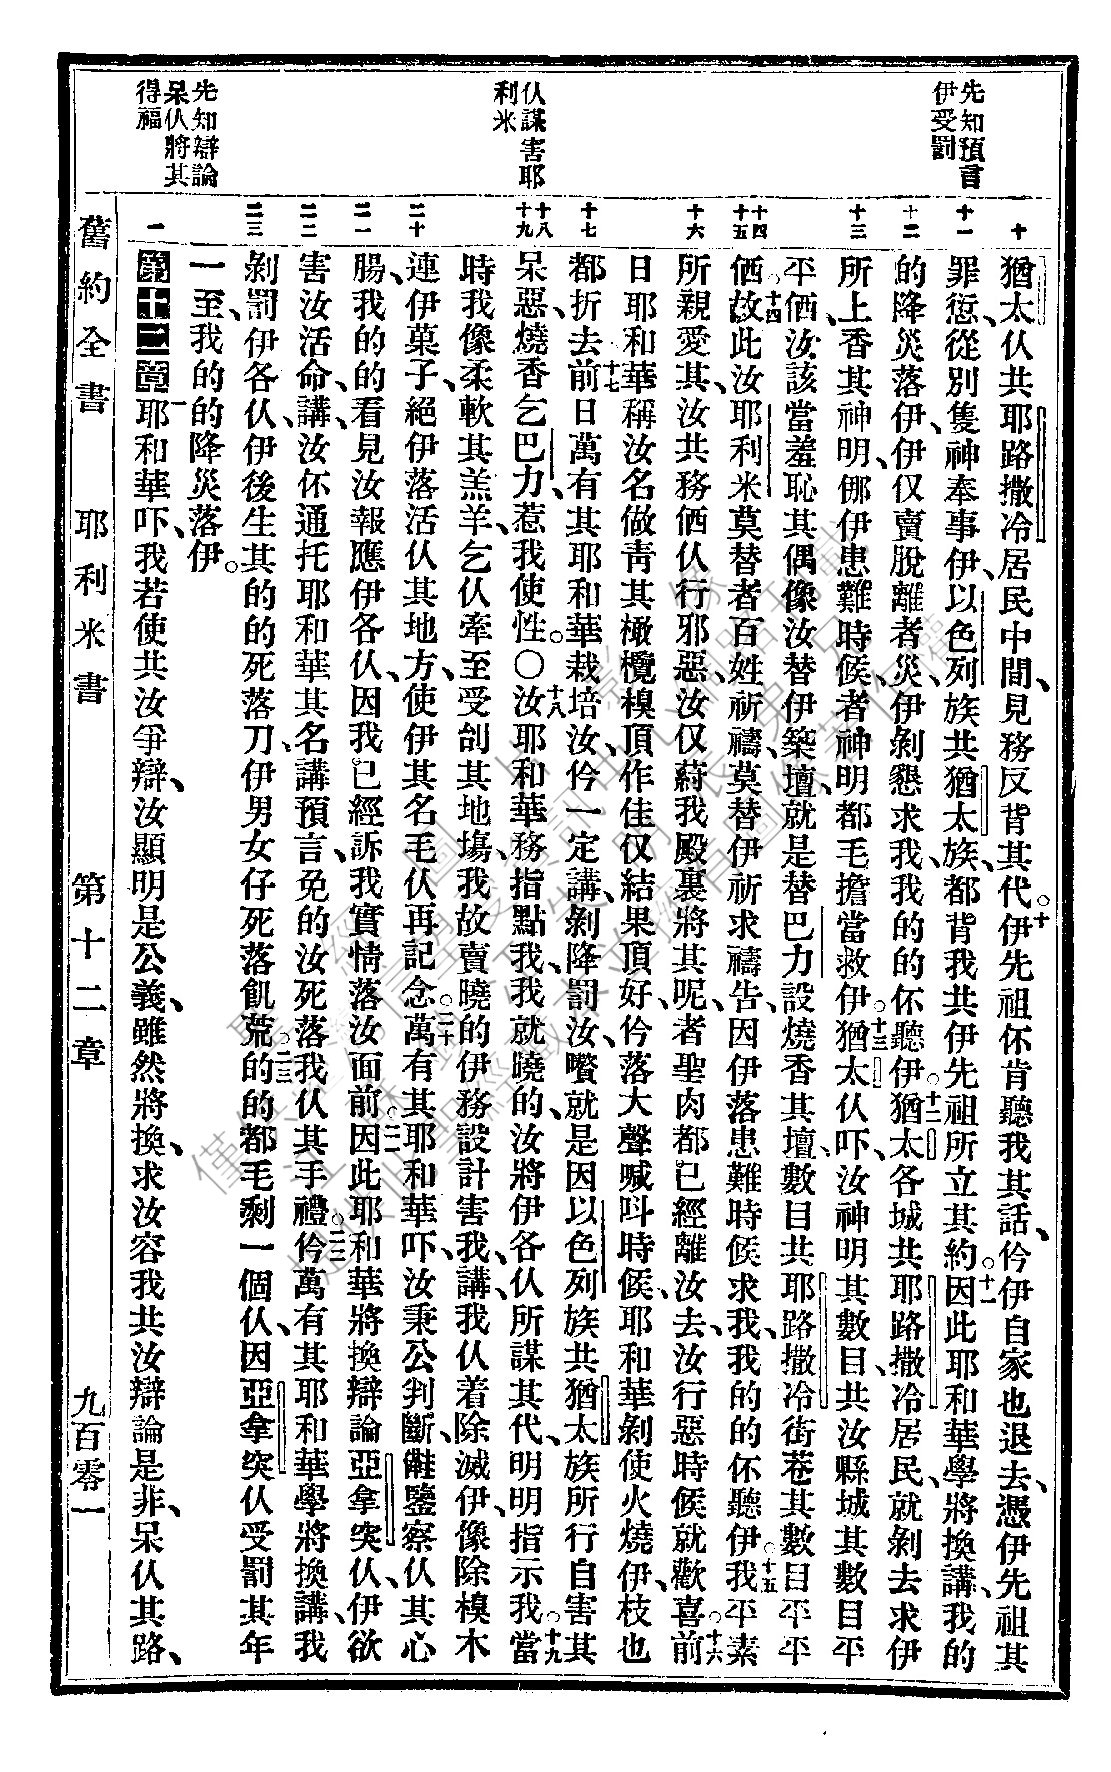 先知預言
伊受罰
仈謀害耶
利米
先知辯論
呆仈將其
得福
十
十一
十二
十三
十四
十五
十六
十七
十八
十九
二十
二一
二二
二三
一
猶太仈共耶路撒冷居民中間、見務反背其代。十伊先祖伓肯聽我其話、仱伊自家也退去、憑伊先祖其
罪愆、從別隻神奉事伊、以色列族共猶太族、都背我共伊先祖所立其約。十一因此耶和華學將換講、我的
的降災落伊、伊仅賣脫離者災、伊剝懇求我、我的的伓聽伊。十二猶太各城共耶路撒冷居民、就剝去求伊
所上香其神明、㑚伊患難時候、者神明都毛擔當救伊。十三猶太仈吓、汝神明其數目、共汝縣城其數目平
平、汝該當羞恥其偶像、汝替伊築壇、就是替巴力設燒香其壇、數目共耶路撒冷街巷其數目平平
。十四故此汝耶利米莫替者百姓祈禱、莫替伊祈求禱告、因伊落患難時候求我、我的的伓聽伊。十五我平素
所親愛其、汝共務仈行邪惡、汝仅蒭我殿裏將其呢、者聖肉都已經離汝去、汝行惡時候就歡喜。十六前
日耶和華稱汝名做靑其橄欖樹、頂作佳仅結果頂好、仱落大聲喊呌時候、耶和華剝使火燒伊、伊枝也
都折去。十七前日萬有其耶和華栽培汝、仱一定講、剝降罰汝、嚽就是因以色列族共猶太族所行自害其
呆惡、燒香乞巴力、惹我使性。〇十八汝耶和華務指點我、我就曉的、汝將伊各仈所謀其代、明明指示我。十九當
時我像柔軟其羔羊、乞仈牽至受刣其地塲、我故賣曉的伊務設計害我、講、我仈着除滅伊、像除樹木
連伊菓子、絕伊落活仈其地方、使伊其名毛仈再記念。二十萬有其耶和華吓、汝秉公判斷、鑒察仈其心
腸、我的的看見汝報應伊各仈、因我已經訴我實情落汝面前。二一因此耶和華將換辯論亞拿突仈、伊欲
害汝活命、講、汝伓通托耶和華其名講預言、免的汝死落我仈其手禮。二二仱萬有其耶和華學將換講、我
剝罰伊各仈、伊後生其的的死落刀、伊男女仔死落飢荒。二三的的都毛剩一個仈、因亞拿突仈受罰其年
一至、我的的降災落伊。
第十二章 一耶和華吓、我若使共汝爭辯、汝顯明是公義、雖然將換、求汝容我共汝辯論是非、呆仈其路、
舊約全書 耶利米書 第十二章 九百零一